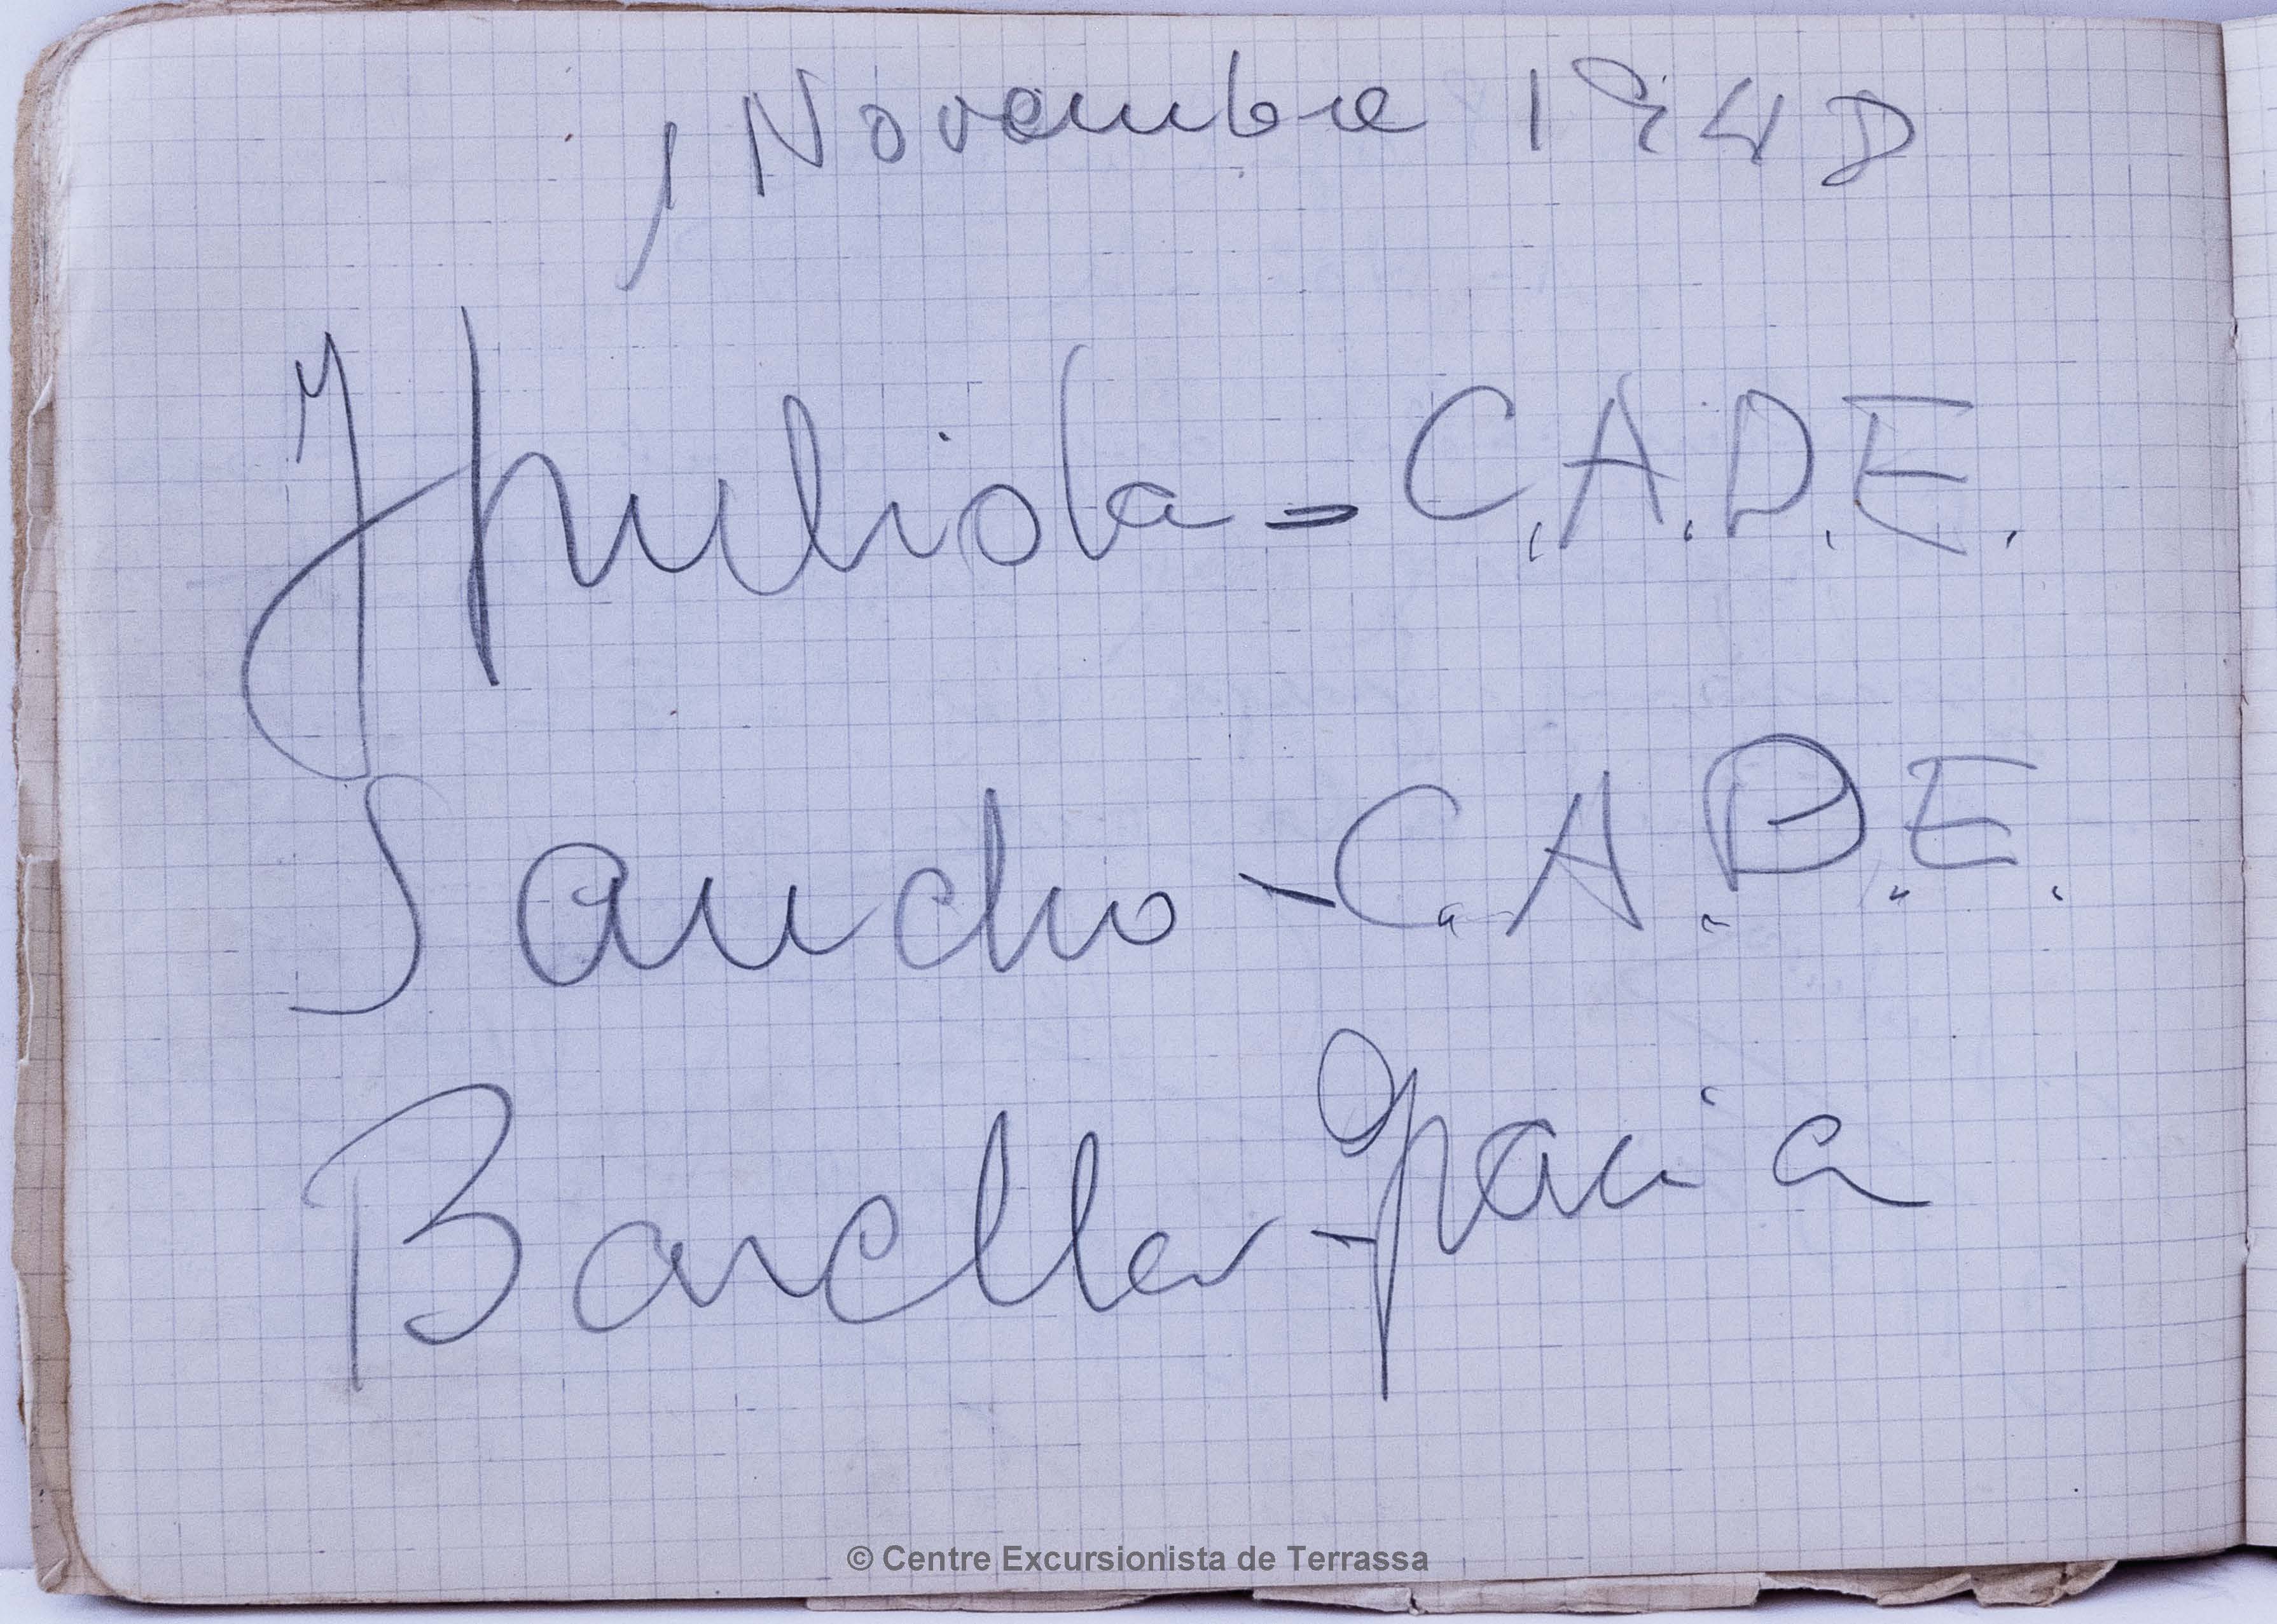 1 Novembre 1948
- C.A.D.E.
Sancho - C.A.D.E.
Barceller - Gracia
© Centre Excursionista de Terrassa